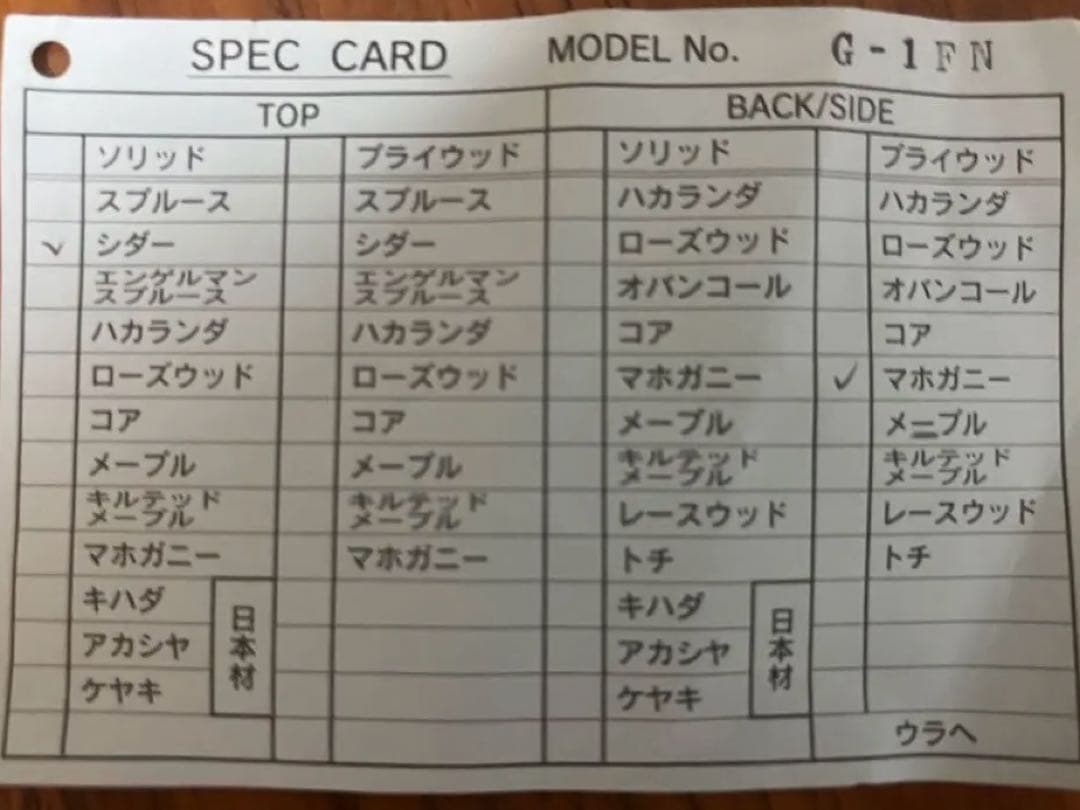 SPEC CARD MODEL No. G-1FN
TOP BACK/SIDE
ソリッド プライウッド ソリッド プライウッド
スプルース スプルース ハカランダ ハカランダ
✓ シダー シダー ローズウッド ローズウッド
エンゲルマン エンゲルマン オバンコール オバンコール
スプルース スプルース
ハカランダ ハカランダ コア コア
ローズウッド ローズウッド マホガニー ✓ マホガニー
コア コア メープル メープル
メープル メープル キルテッド キルテッド
メープル メープル
キルテッド キルテッド レースウッド レースウッド
メープル メープル
マホガニー マホガニー トチ トチ
キハダ キハダ
アカシヤ 日本材 アカシヤ 日本材
ケヤキ ケヤキ
ウラへ